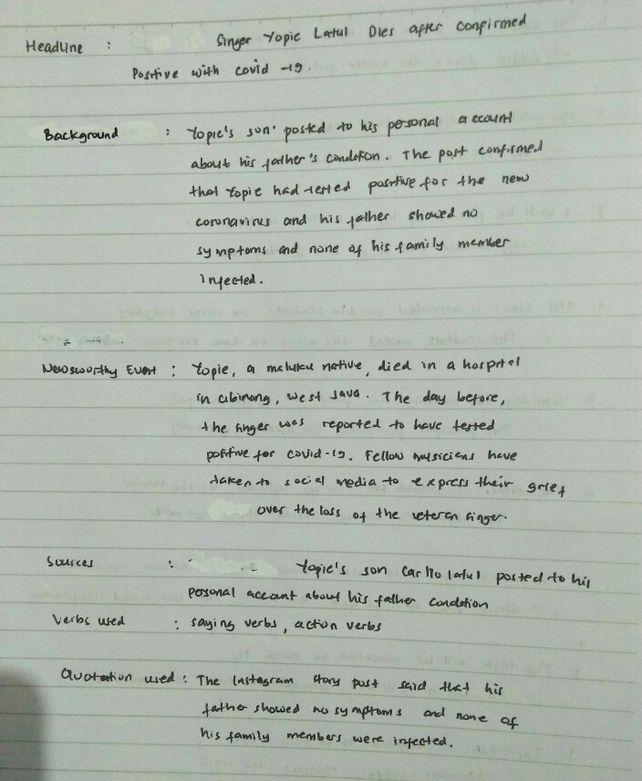 Headline : Singer Yopie Latul Dies after confirmed
Positive with covid -19.
Background : Yopie's son' posted to his personal account
about his father's condition. The post confirmed
that Yopie had tested positive for the new
coronavirus and his father showed no
symptoms and none of his family member
infected.
Newsworthy Event : Yopie, a maluku native, died in a hospital
in cibinong, west Java. The day before,
the singer was reported to have tested
positive for covid-19. Fellow musicians have
taken to social media to express their grief
over the loss of the veteran singer.
Sources : Yopie's son Carllo latul posted to his
personal account about his father condition
Verbs used : saying verbs, action verbs
Quotation used : The Instagram story post said that his
father showed no symptoms and none of
his family members were infected.